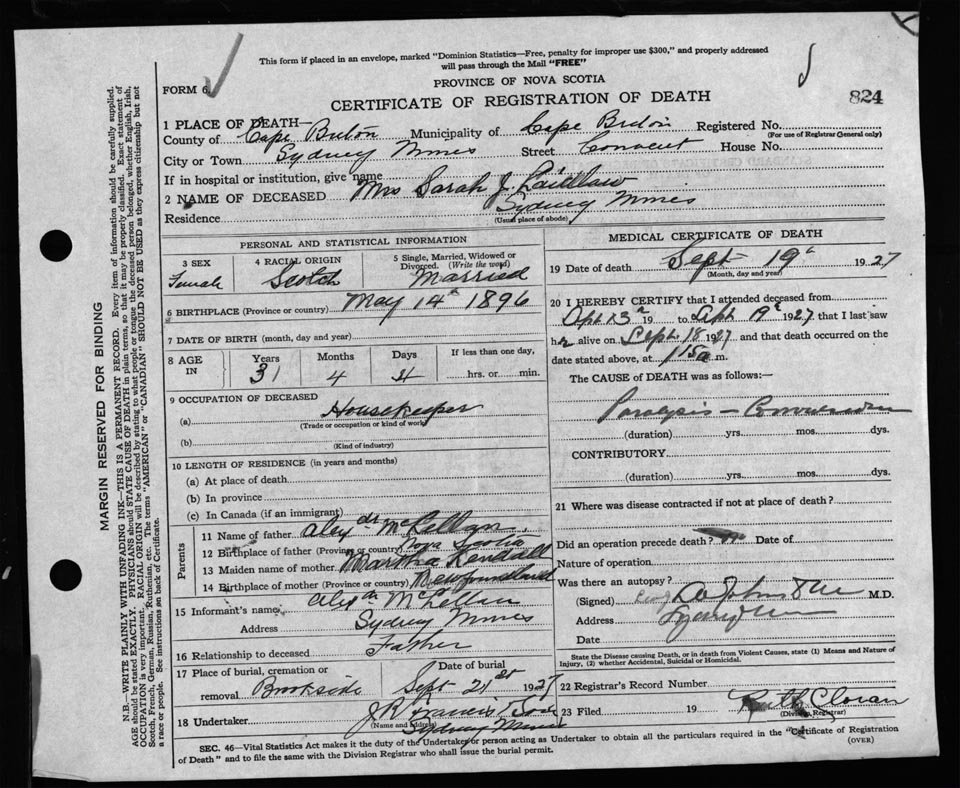 This form if placed in an envelope, marked "Dominion Statistics—Free, penalty for improper use $300," and properly addressed
will pass through the Mail "FREE"
FORM 6
PROVINCE OF NOVA SCOTIA
CERTIFICATE OF REGISTRATION OF DEATH
824
1 PLACE OF DEATH—
County of Cape Breton Municipality of Cape Breton Registered No.
(For use of Registrar General only)
City or Town Sydney Mines Street Convent House No.
If in hospital or institution, give name
2 NAME OF DECEASED Mrs Sarah J. Laidlaw
Residence Sydney Mines
(Usual place of abode)
PERSONAL AND STATISTICAL INFORMATION
3 SEX Female
4 RACIAL ORIGIN Scotch
5 Single, Married, Widowed or Divorced. (Write the word) Married
6 BIRTHPLACE (Province or country) May 14th 1896
7 DATE OF BIRTH (month, day and year)
8 AGE IN Years 31 Months 4 Days 4 If less than one day, hrs. or min.
9 OCCUPATION OF DECEASED
(a) Housekeeper
(Trade or occupation or kind of work)
(b)
(Kind of industry)
10 LENGTH OF RESIDENCE (in years and months)
(a) At place of death
(b) In province
(c) In Canada (if an immigrant)
Parents
11 Name of father McLellan
12 Birthplace of father (Province or country) Nova Scotia
13 Maiden name of mother Martha
14 Birthplace of mother (Province or country) Newfoundland
15 Informant's name McLellan
Address Sydney Mines
16 Relationship to deceased Father
17 Place of burial, cremation or removal Brookside
Date of burial Sept 21st 1927
18 Undertaker J R Francis & Son
(Name and address)
Sydney Mines
MEDICAL CERTIFICATE OF DEATH
19 Date of death Sept 19th 1927
(Month, day and year)
20 I HEREBY CERTIFY that I attended deceased from
Sept 13th 19 to Sept 19th 1927 that I last saw
her alive on Sept 18 1927 and that death occurred on the
date stated above, at 1 15 a m.
The CAUSE of DEATH was as follows:—
Paralysis —
(duration) yrs. mos. dys.
CONTRIBUTORY
(duration) yrs. mos. dys.
21 Where was disease contracted if not at place of death?
Did an operation precede death? no Date of
Nature of operation
Was there an autopsy?
(Signed) M.D.
Address Sydney Mines
Date
State the Disease causing Death, or in death from Violent Causes, state (1) Means and Nature of
Injury, (2) whether Accidental, Suicidal or Homicidal.
22 Registrar's Record Number
23 Filed 19 Ruth Cloran
(Division Registrar)
SEC. 46—Vital Statistics Act makes it the duty of the Undertaker or person acting as Undertaker to obtain all the particulars required in the "Certificate of Registration
of Death" and to file the same with the Division Registrar who shall issue the burial permit.
(OVER)
MARGIN RESERVED FOR BINDING
N.B.—WRITE PLAINLY WITH UNFADING INK—THIS IS A PERMANENT RECORD. Every item of information should be carefully supplied.
AGE should be stated EXACTLY. PHYSICIANS should STATE CAUSE OF DEATH in plain terms, so that it may be properly classified. Exact statement of
OCCUPATION is very important. RACIAL ORIGIN will be described by stating to what people or tongue the deceased person belonged, whether English, Irish,
Scotch, French, German, Russian, Ruthenian, etc. The terms "AMERICAN" or "CANADIAN" SHOULD NOT BE USED as they express citizenship but not
a race or people. See instructions on back of Certificate.